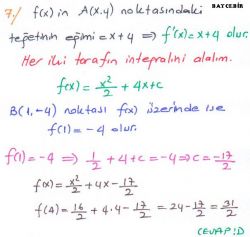 BAYCEBİR
7/ f(x) in A(x.y) noktasındaki
teğetinin eğimi = x+4 ⇒ f'(x) = x+4 olur.
Her iki tarafın integralini alalım.
f(x) = x²/2 + 4x + c
B(1,-4) noktası f(x) üzerinde ise
f(1) = -4 olur.
f(1) = -4 ⇒ 1/2 + 4 + c = -4 ⇒ c = -17/2
f(x) = x²/2 + 4x - 17/2
f(4) = 16/2 + 4.4 - 17/2 = 24 - 17/2 = 31/2
CEVAP: D